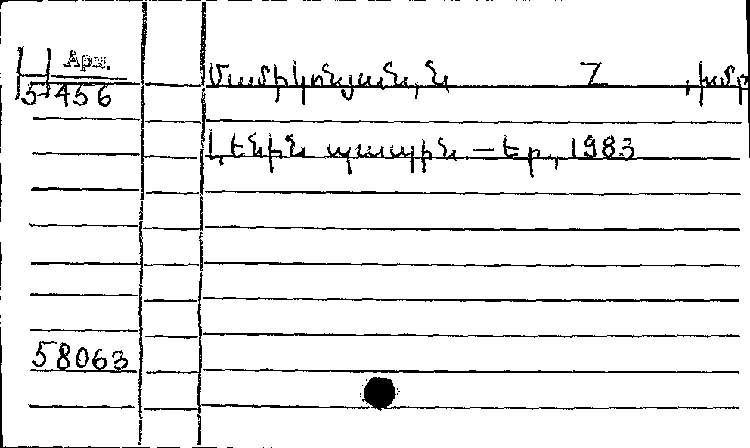 Арм.
5456
Մամիկոնյան, Ն Z , խմբ
Լենին պապին. — Եր., 1983
58063